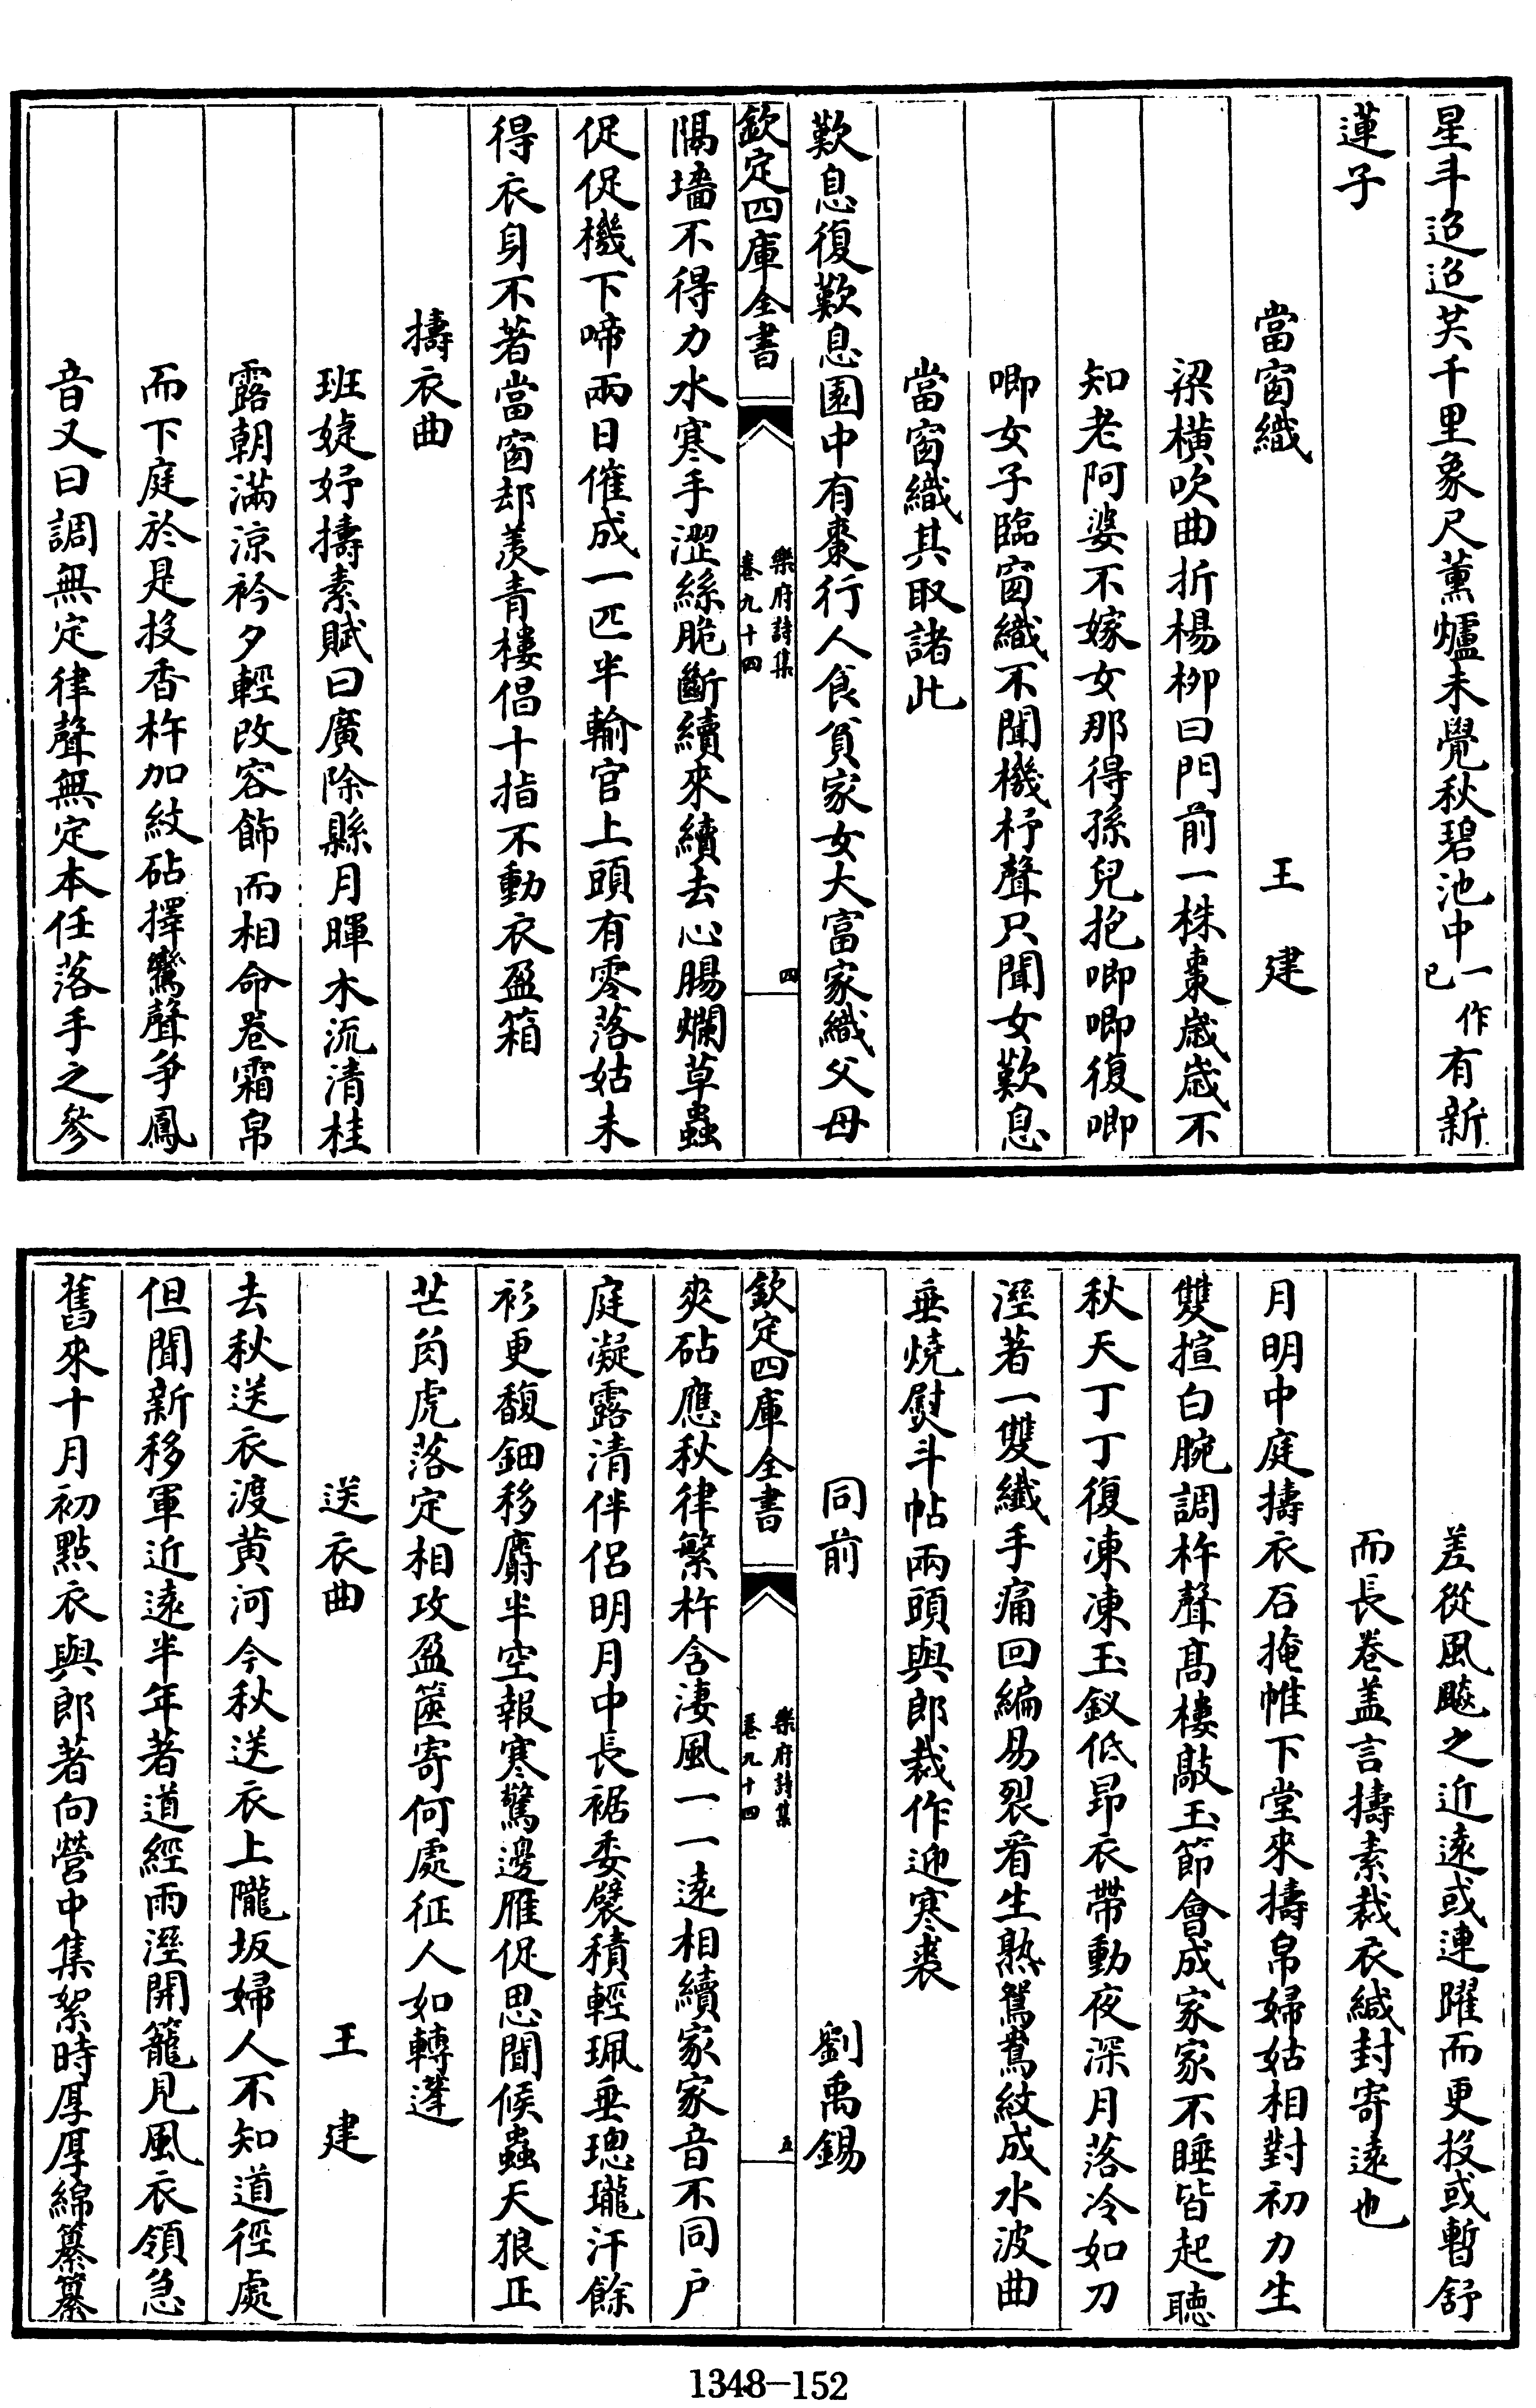 星斗迢迢共千里象尺薰爐未覺秋碧池中一作已有新
蓮子
當窗織
王建
梁橫吹曲折楊柳曰門前一株棗歲歲不
知老阿婆不嫁女那得孫兒抱唧唧復唧
唧女子臨窗織不聞機杼聲只聞女歎息
當窗織其取諸此
歎息復歎息園中有棗行人食貧家女大富家織父母
欽定四庫全書
樂府詩集
卷九十四
四
隔墻不得力水寒手澀絲脆斷續來續去心腸爛草蟲
促促機下啼兩日催成一匹半輸官上頭有零落姑未
得衣身不著當窗却羨青樓倡十指不動衣盈箱
擣衣曲
班婕妤擣素賦曰廣除縣月暉木流清桂
露朝滿涼衿夕輕改容飾而相命卷霜帛
而下庭於是投香杵加紋砧擇鸞聲爭鳳
音又曰調無定律聲無定本任落手之參
差從風飈之近遠或連躍而更投或暫舒
而長卷盖言擣素裁衣緘封寄遠也
月明中庭擣衣石掩帷下堂來擣帛婦姑相對初力生
雙揎白腕調杵聲高樓敲玉節會成家家不睡皆起聽
秋天丁丁復凍凍玉釵低昂衣帶動夜深月落冷如刀
溼著一雙纖手痛回編易裂看生熟鴛鴦紋成水波曲
垂燒熨斗帖兩頭與郎裁作迎寒裘
同前
劉禹錫
欽定四庫全書
樂府詩集
卷九十四
五
爽砧應秋律繁杵含淒風一一遠相續家家音不同户
庭凝露清伴侣明月中長裾委襞積輕珮垂璁瓏汗餘
衫更馥鈿移麝半空報寒驚邊雁促思聞候蟲天狼正
芒角虎落定相攻盈篋寄何處征人如轉蓬
送衣曲
王建
去秋送衣渡黄河今秋送衣上隴坂婦人不知道徑處
但聞新移軍近遠半年著道經雨溼開籠見風衣領急
舊來十月初點衣與郎著向營中集絮時厚厚綿纂纂
1348—152